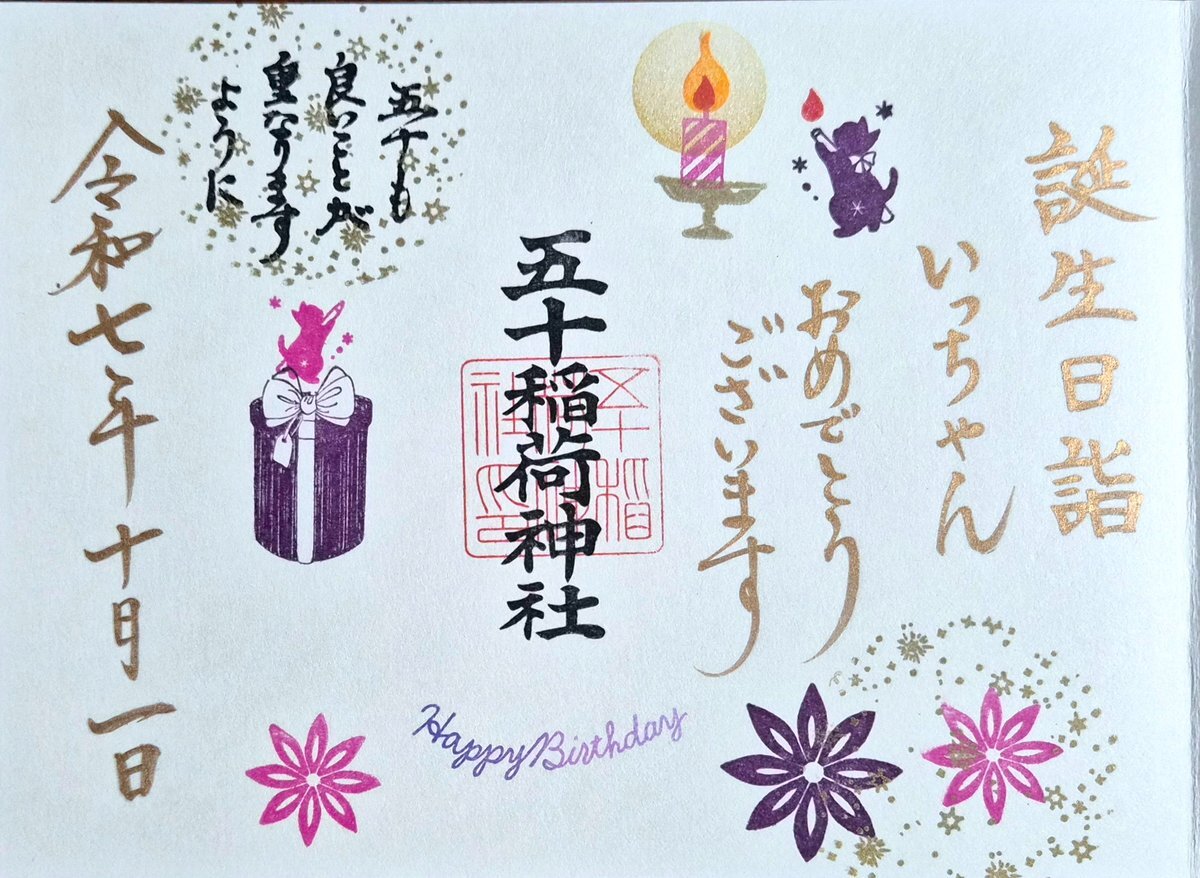 誕生日詣
いっちゃん
おめでとう
ございます
五十稲荷神社
五十も
良いことが
重なります
ように
令和七年十月一日
Happy Birthday